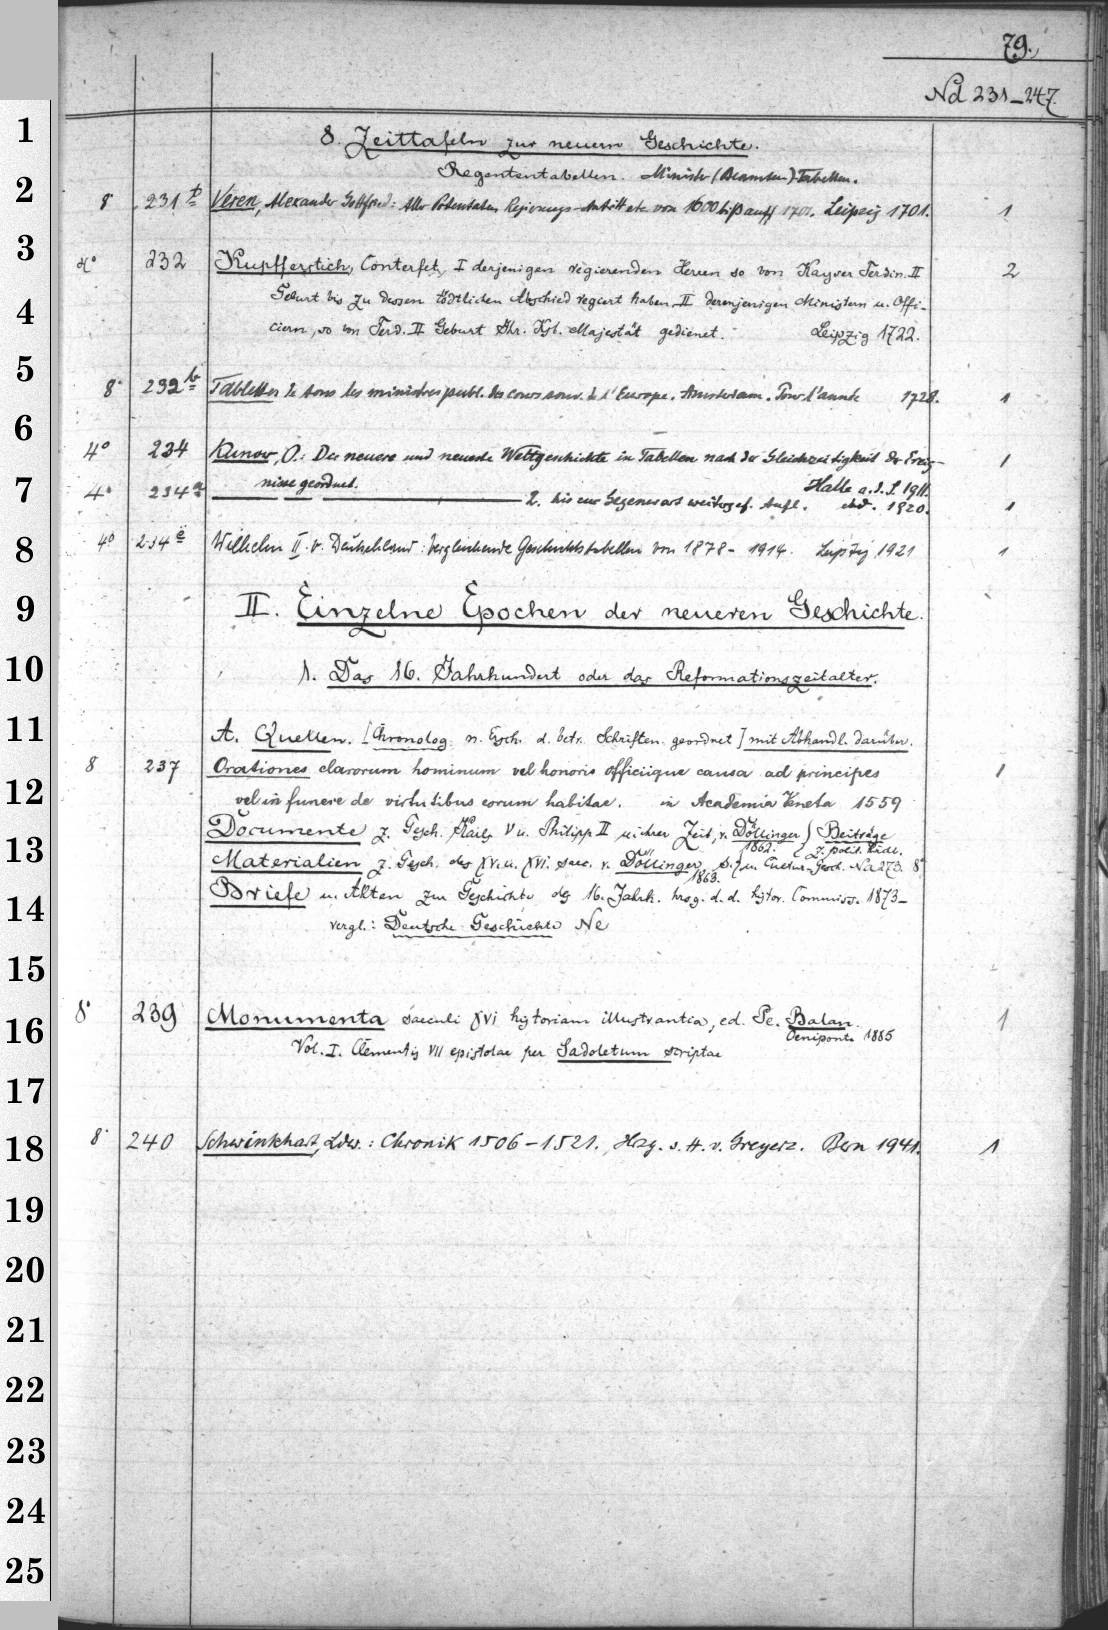 79.
Nd 231-247.
8. Zeittafeln zur neuern Geschichte.
Regententabellen. Minister (Beamten)-Tabellen.
8° 231 b Veren, Alexander Gottfried: Aller Potentaten Regierungs-Antritt etc von 1600 biß auff 1701. Leipzig 1701. 1
4° 232 Kupfferstich, Conterfet, I derjenigen regierenden Herren so von Kayser Ferdin. II 2
Geburt bis zu dessen tödtlichen Abschied regiert haben, II derenjenigen Ministern u. Offi-
ciern, so von Ferd. II Geburt Ihr. Kgl. Majestät gedienet. Leipzig 1722.
8° 232 b Tablettes de tous les ministres publ. des cours souv. de l'Europe. Amsterdam. Pour l'année 1728. 1
4° 234 Kunow, O.: Die neuere und neueste Weltgeschichte in Tabellen nach der Gleichzeitigkeit der Ereig- 1
nisse geordnet. Halle a. d. S. 1911.
4° 234 a 2. bis zur Gegenwart weitergef. Aufl. ebd. 1920. 1
4° 234 e Wilhelm II. v. Deutschland: Vergleichende Geschichtstabellen von 1878-1914. Leipzig 1921 1
II. Einzelne Epochen der neueren Geschichte.
1. Das 16. Jahrhundert oder das Reformationszeitalter.
A. Quellen. [Chronolog. n. Ersch. d. betr. Schriften geordnet] mit Abhandl. darüber.
8 237 Orationes clarorum hominum vel honoris officiique causa ad principes 1
vel in funere de virtutibus eorum habitae. in Academia Veneta 1559
Documente z. Gesch. Karls V u. Philipp II u. ihrer Zeit, v. Döllinger } Beiträge
1862. z. polit. kirchl.
Materialien z. Gesch. des XV. u. XVI. saec. v. Döllinger, s. } u. Cultur-Gesch. Na 273. 8°
1863.
Briefe u. Akten zur Geschichte des 16. Jahrh. hrsg. d. d. histor. Commiss. 1873-
vergl.: Deutsche Geschichte Ne
8° 239 Monumenta saeculi XVI historiam illustrantia, ed. Pe. Balan. 1
Oeniponte 1885
Vol. I. Clementis VII epistolae per Sadoletum scriptae
8° 240 Schwinkhart, Ldw.: Chronik 1506-1521., Hrg. v. H. v. Greyerz. Bern 1941. 1
1
2
3
4
5
6
7
8
9
10
11
12
13
14
15
16
17
18
19
20
21
22
23
24
25